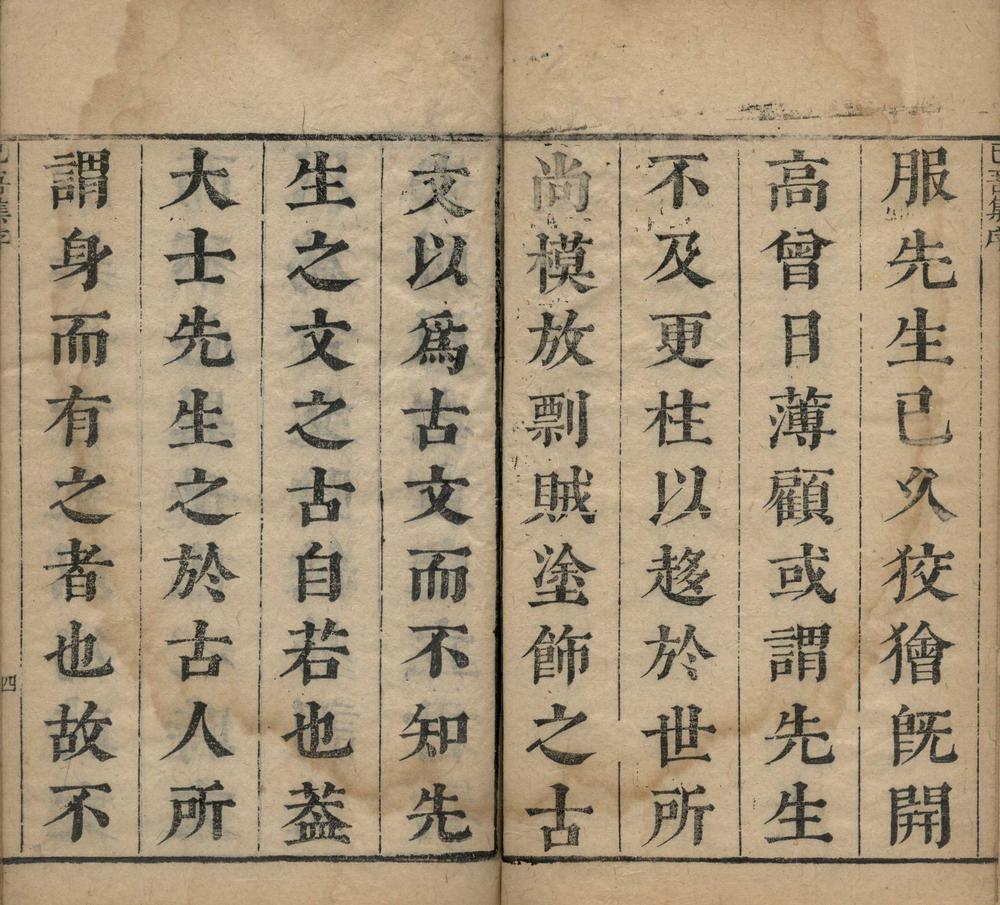 服先生已久狡獪旣開
高曾日薄顧或謂先生
不及更柱以趍於世所
尚模放剽賊塗飾之古
文以爲古文而不知先
生之文之古自若也葢
大士先生之於古人所
謂身而有之者也故不
四